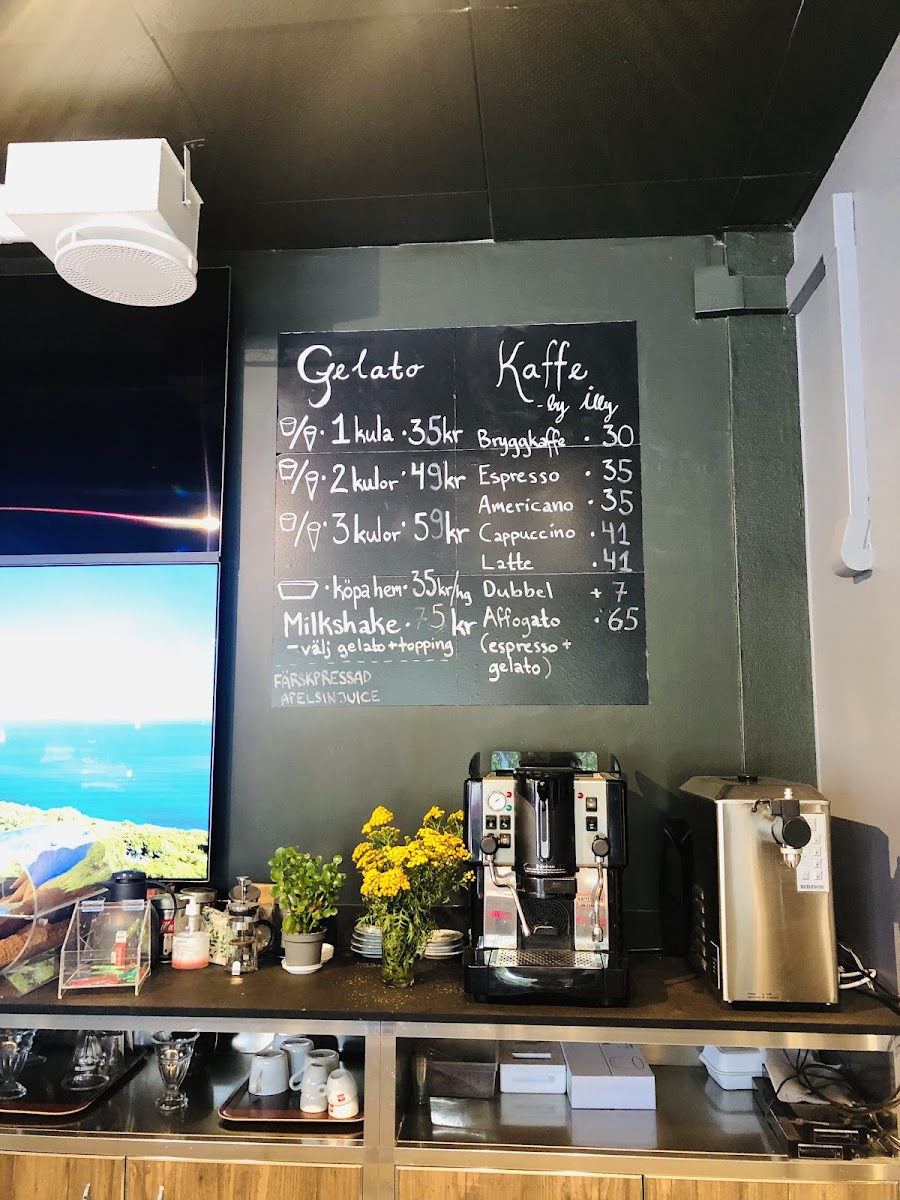 Gelato
1 kula · 35kr
2 kulor · 49kr
3 kulor · 59kr
· köpa hem · 35kr/hg
Milkshake · 75 kr
- välj gelato + topping
FÄRSKPRESSAD
APELSINJUICE
Kaffe
- by illy
Bryggkaffe · 30
Espresso · 35
Americano · 35
Cappuccino · 41
Latte · 41
Dubbel + 7
Affogato · 65
(espresso +
gelato)